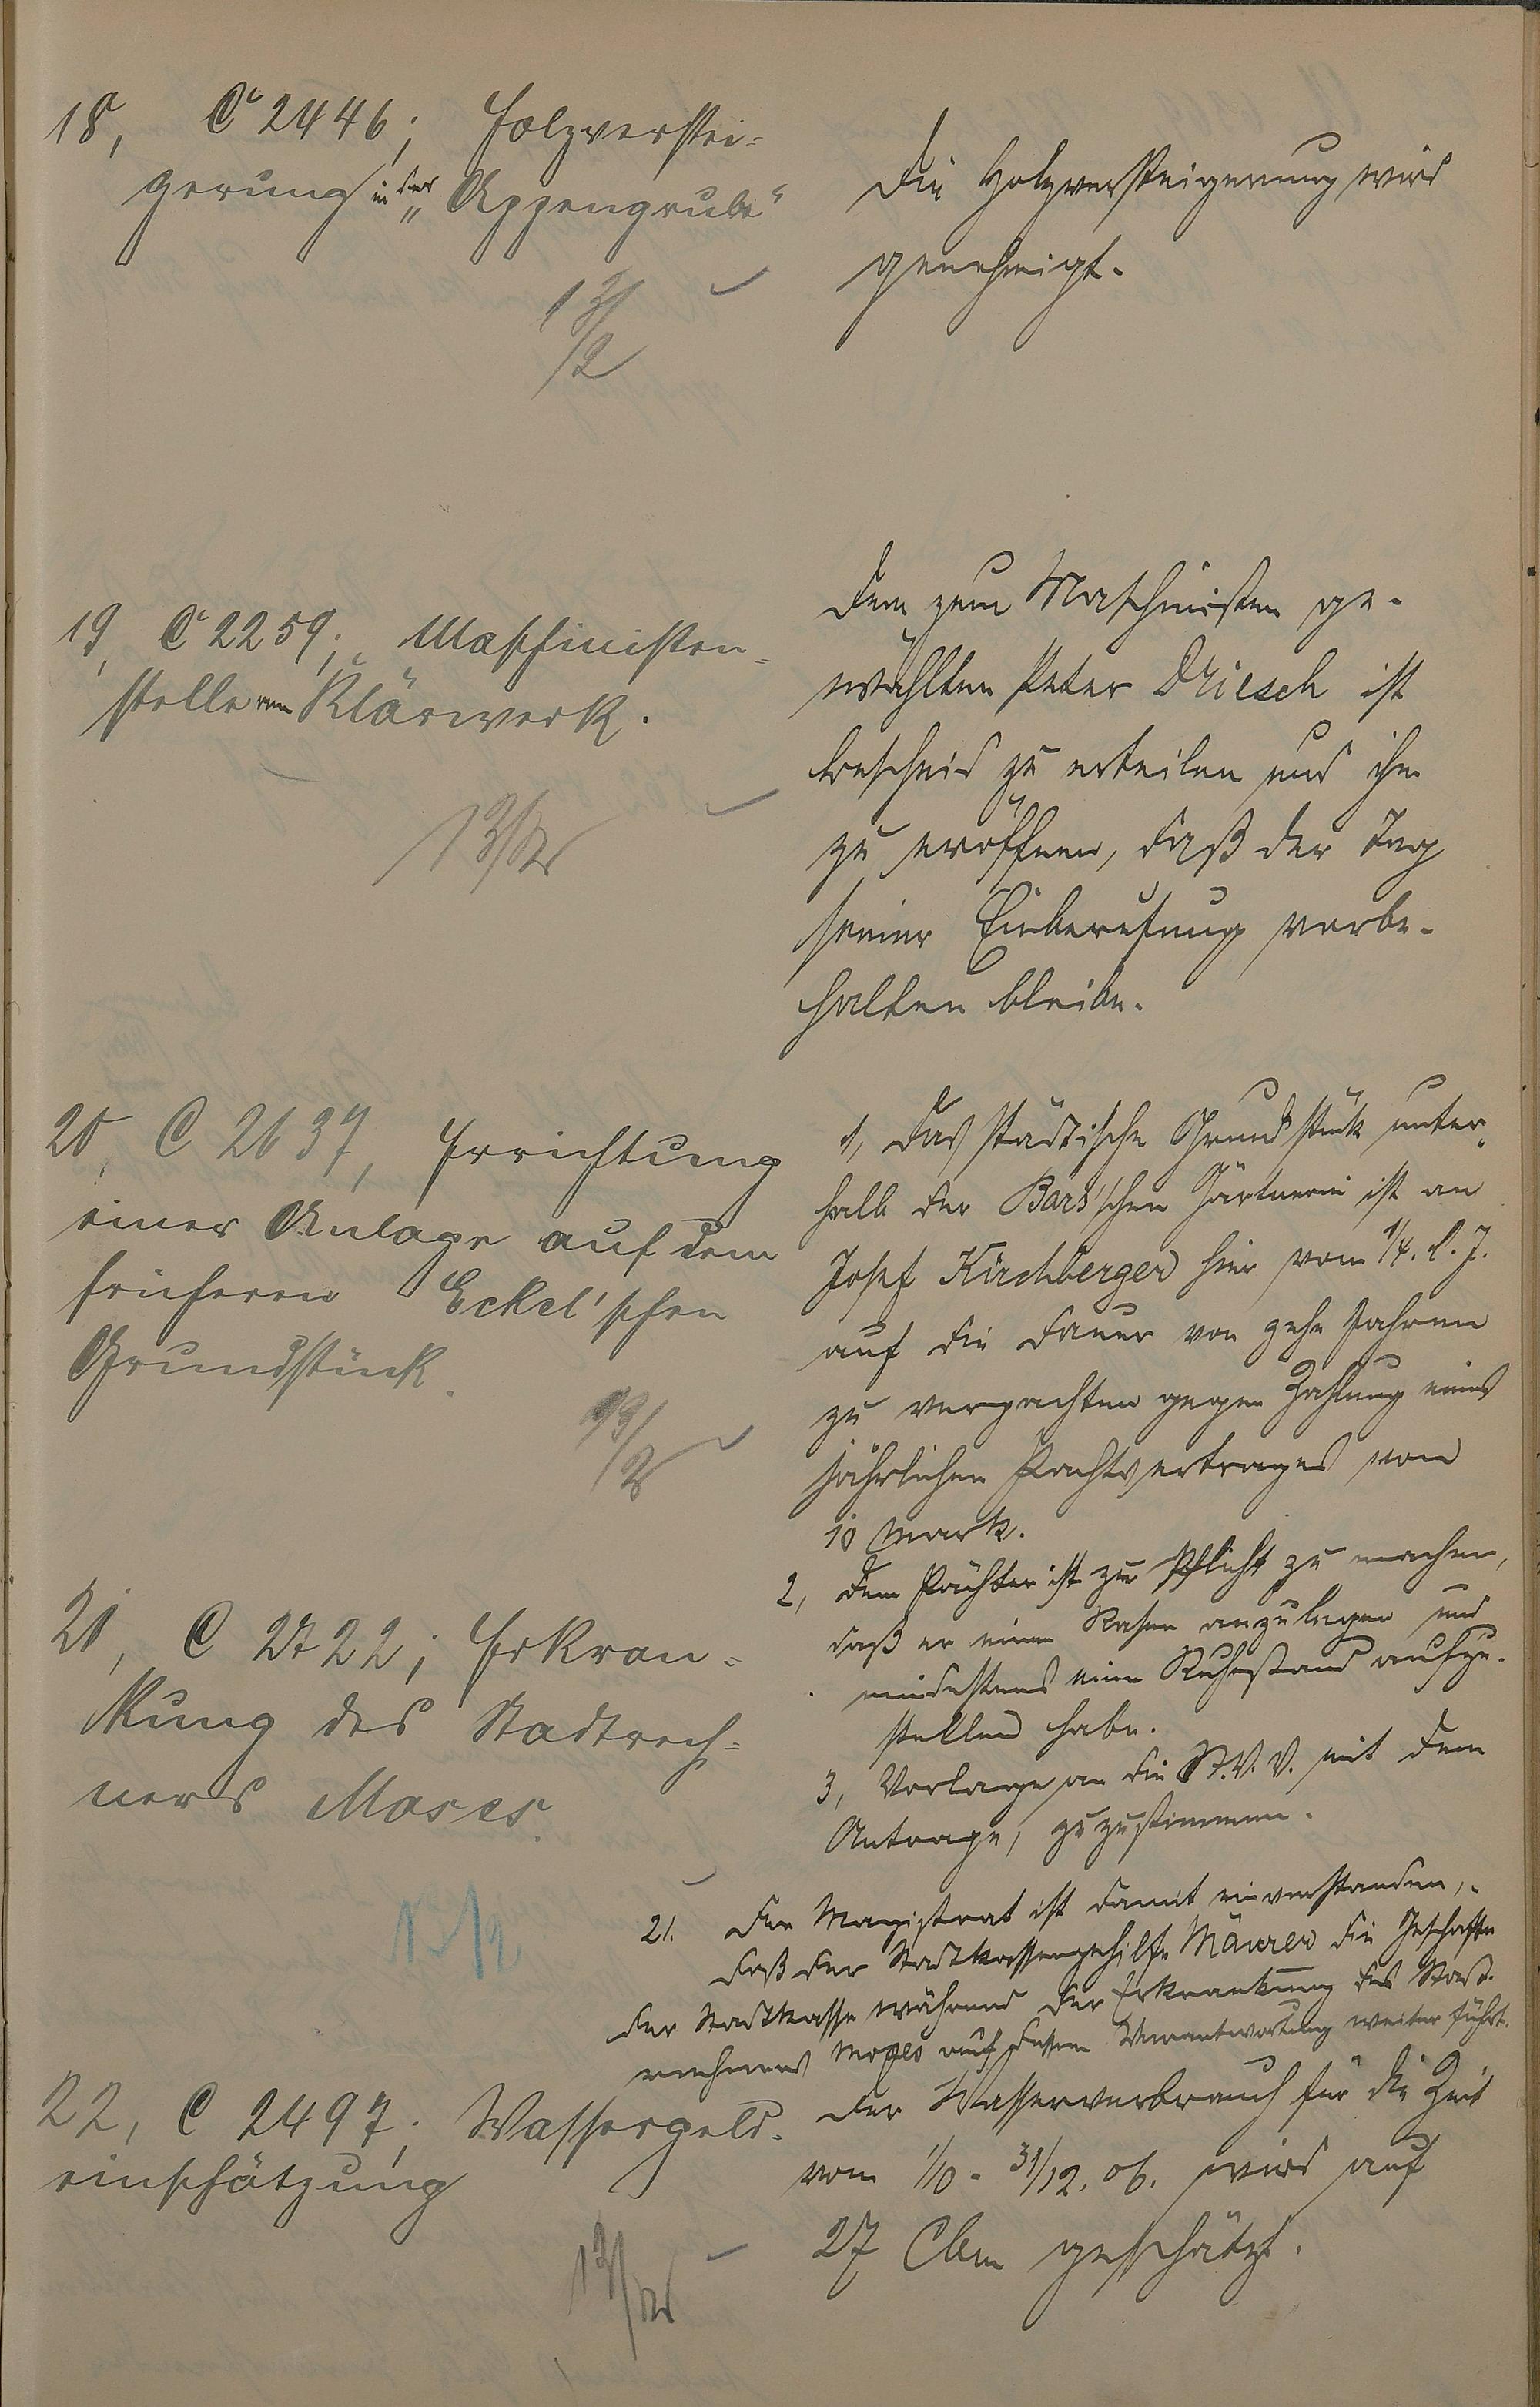 18, C 2446; Holzverstei-
gerung in der „Appengrube“
13/2
Die Holzversteigerung wird
genehmigt.
19, C 2259; Maschinisten-
stelle am Klärwerk.
13/2
Dem zum Maschinisten ge-
wählten Peter Driesch ist
Bescheid zu erteilen und ihm
zu eröffnen, daß der Tag
seiner Einberufung vorbe-
halten bleibe.
20, C 2637, Errichtung
einer Anlage auf dem
früheren Eckel'schen
Grundstück.
13/2
1, Das städtische Grundstück unter-
halb der Bärs'schen Gärtnerei ist an
Josef Kirchberger hier vom 1/4. l. J.
auf die Dauer von zehn Jahren
zu verpachten gegen Zahlung eines
jährlichen Pachtvertrages von
10 Mark.
2, Dem Pächter ist zur Pflicht zu machen,
daß er einen Rasen anzulegen und
mindestens eine aufzu-
stellen habe.
3, Vorlage an die St. V. V. mit dem
Antrage, zuzustimmen.
21, C 2722; Erkran-
kung des Stadtrech-
ners Moses.
13/2
21. Der Magistrat ist damit einverstanden,
daß der Stadtkassengehilfe Mäurer die Geschäfte
der Stadtkasse während der Erkrankung des Stadt-
rechners Moses auf dessen Verantwortung weiter führt.
22, C 2497; Wassergeld-
einschätzung
13/2
Der Wasserverbrauch für die Zeit
vom 1/10 - 31/12. 06. wird auf
27 Cbm geschätzt.